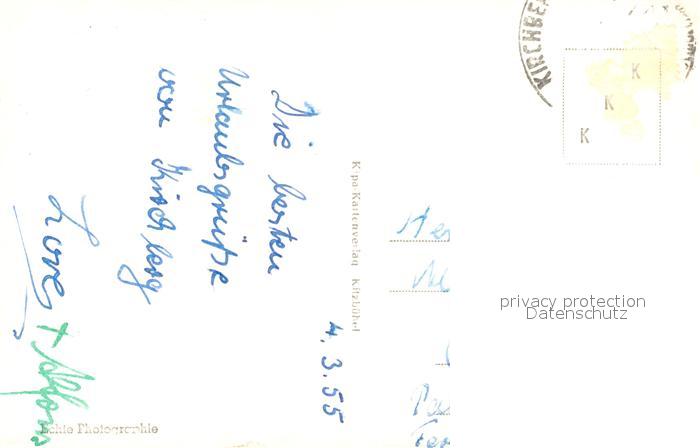 4.3.55
Die besten
Urlaubsgrüße
von Kirchberg
+ Alfons
Echte Photographie
Kipa-Kartenverlag Kitzbühel
KIRCHBE
K
K
K
privacy protection
Datenschutz